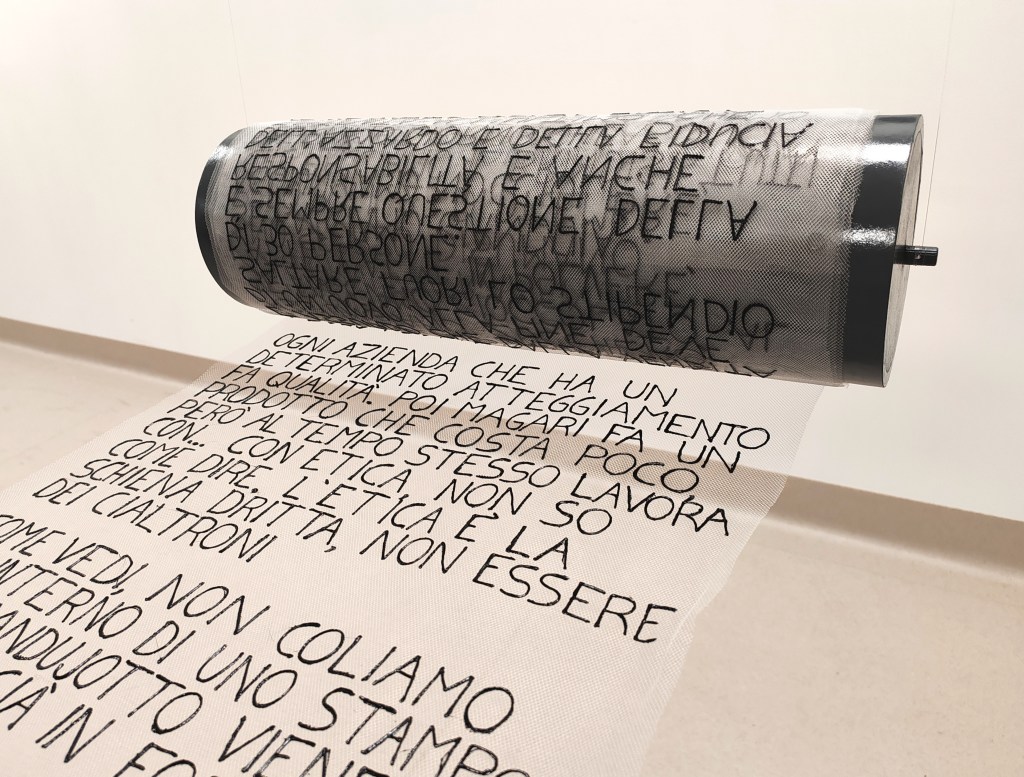 ALLA FINE, DEVE
SALTARE FUORI LO STIPENDIO
DI 30 PERSONE.
È SEMPRE QUESTIONE DELLA
RESPONSABILITÀ E ANCHE
DELL'AZZARDO E DELLA FIDUCIA.
OGNI AZIENDA CHE HA UN
DETERMINATO ATTEGGIAMENTO
FA QUALITÀ. POI MAGARI FA UN
PRODOTTO CHE COSTA POCO,
PERÒ AL TEMPO STESSO LAVORA
CON... CON ETICA, NON SO
COME DIRE. L'ETICA È LA
SCHIENA DRITTA, NON ESSERE
DEI CIALTRONI
COME VEDI, NON COLIAMO
INTERNO DI UNO STAMPO
ANDUJOTTO VIENE
IN